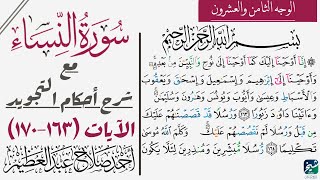 الوجه الثامن والعشرون
سورة النساء
مع
شرح أحكام التجويد
الآيات (١٦٣-١٧٠)
أحمد صلاح عبد العظيم
بِسْمِ اللَّهِ الرَّحْمَٰنِ الرَّحِيمِ
إِنَّا أَوْحَيْنَا إِلَيْكَ كَمَا أَوْحَيْنَا إِلَىٰ نُوحٍ وَالنَّبِيِّينَ مِنْ بَعْدِهِ
وَأَوْحَيْنَا إِلَىٰ إِبْرَاهِيمَ وَإِسْمَاعِيلَ وَإِسْحَاقَ وَيَعْقُوبَ
وَالْأَسْبَاطِ وَعِيسَىٰ وَأَيُّوبَ وَيُونُسَ وَهَارُونَ وَسُلَيْمَانَ
وَآتَيْنَا دَاوُودَ زَبُورًا وَرُسُلًا قَدْ قَصَصْنَاهُمْ عَلَيْكَ
مِنْ قَبْلُ وَرُسُلًا لَمْ نَقْصُصْهُمْ عَلَيْكَ وَكَلَّمَ اللَّهُ مُوسَىٰ
تَكْلِيمًا رُسُلًا مُبَشِّرِينَ وَمُنْذِرِينَ لِئَلَّا يَكُونَ